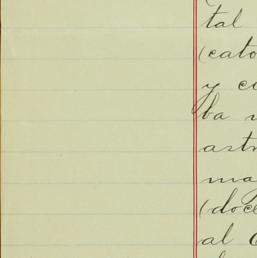 tal
(cato
y co
ba
astr
ma
(doce
al